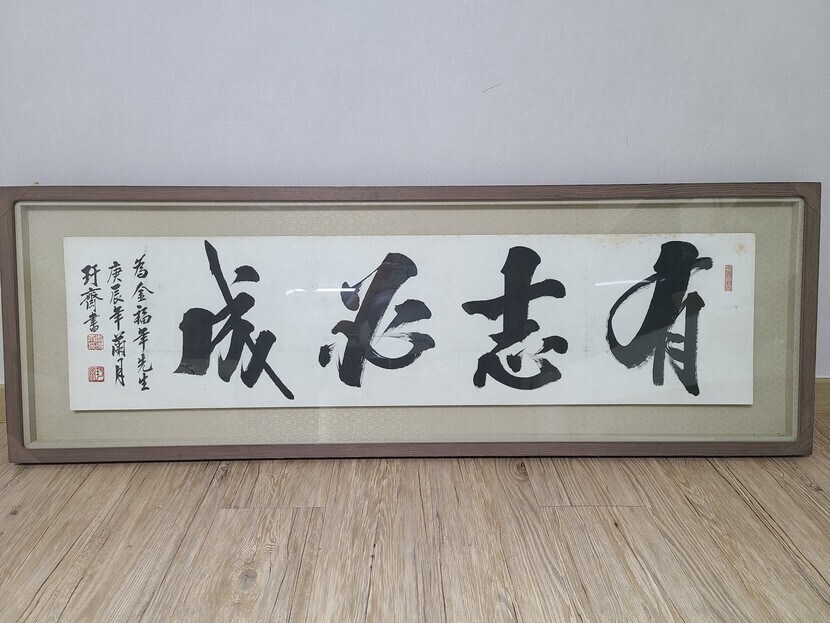 有志必成
為金福年先生
庚辰年蘭月
玗齋書